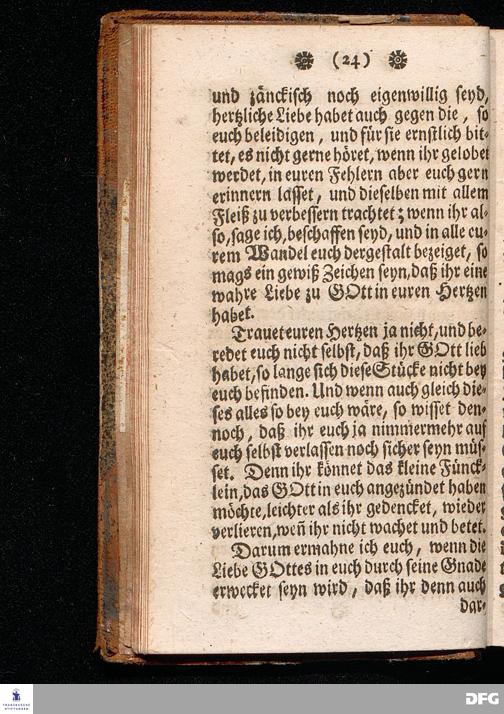 (24)
und zänckisch noch eigenwillig seyd,
hertzliche Liebe habet auch gegen die, so
euch beleidigen, und für sie ernstlich bit-
tet, es nicht gerne höret, wenn ihr gelobet
werdet, in euren Fehlern aber euch gern
erinnern lasset, und dieselben mit allem
Fleiß zu verbessern trachtet; wenn ihr al-
so, sage ich, beschaffen seyd, und in alle eu-
rem Wandel euch dergestalt bezeiget, so
mags ein gewiß Zeichen seyn, daß ihr eine
wahre Liebe zu GOtt in euren Hertzen
habet.
Trauet euren Hertzen ja nicht, und be-
redet euch nicht selbst, daß ihr GOtt lieb
habet, so lange sich diese Stücke nicht bey
euch befinden. Und wenn auch gleich die-
ses alles so bey euch wäre, so wisset den-
noch, daß ihr euch ja nimmermehr auf
euch selbst verlassen noch sicher seyn müs-
set. Denn ihr könnet das kleine Fünck-
lein, das GOtt in euch angezündet haben
möchte, leichter als ihr gedencket, wieder
verlieren, weñ ihr nicht wachet und betet.
Darum ermahne ich euch, wenn die
Liebe GOttes in euch durch seine Gnade
erwecket seyn wird, daß ihr denn auch
dar-
FRANCKESCHE
STIFTUNGEN
DFG